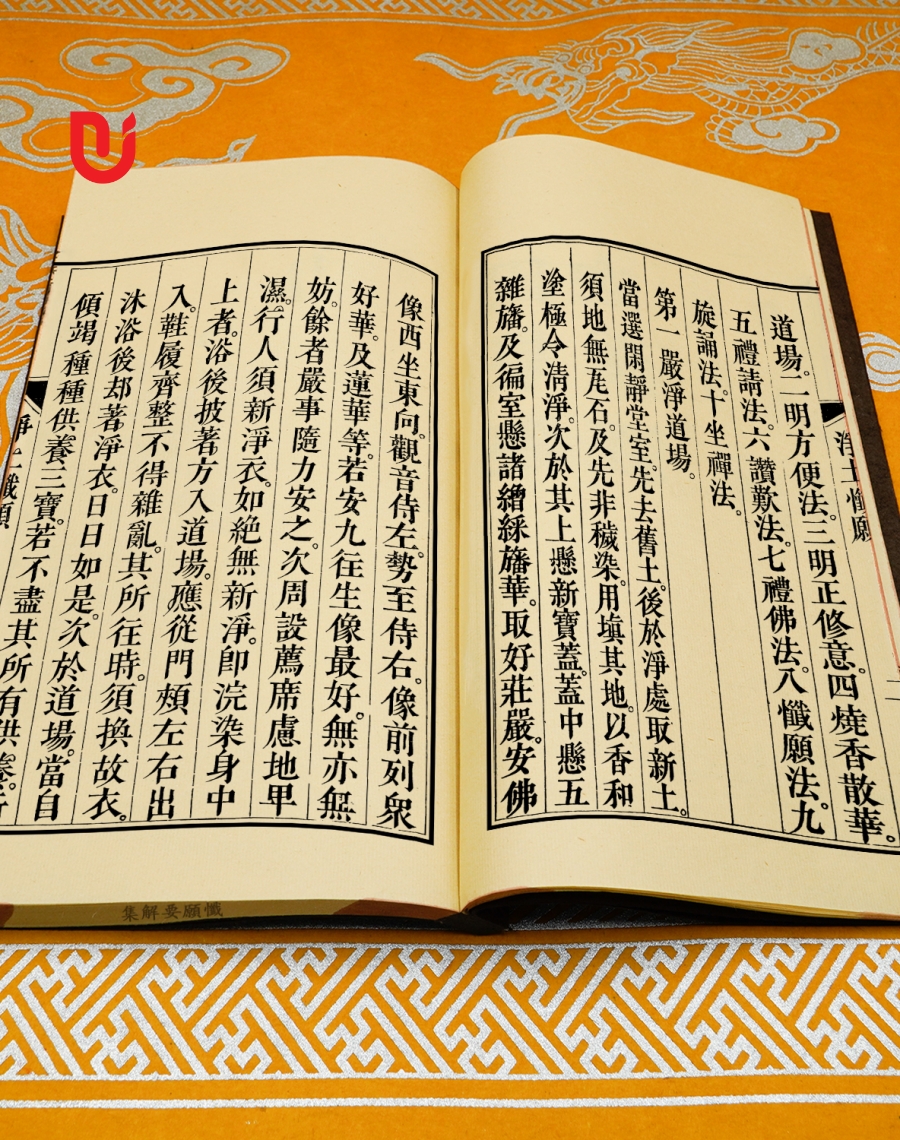 淨土懺願
道場。二明方便法。三明正修意。四燒香散華。
五禮請法。六讚歎法。七禮佛法。八懺願法。九
旋誦法。十坐禪法。
第一嚴淨道場。
當選閑靜堂室。先去舊土。後於淨處取新土。
須地無瓦石。及先非穢染。用填其地。以香和
塗極令清淨。次於其上懸新寶蓋。蓋中懸五
雜旛。及徧室懸諸繒綵旛華。取好莊嚴。安佛
像西坐東向。觀音侍左。勢至侍右。像前列衆
好華。及蓮華等。若安九往生像最好。無亦無
妨。餘者嚴事隨力安之。次周設薦席慮地卑
濕。行人須新淨衣。如絶無新淨。卽浣染身中
上者。浴後披著。方入道場。應從門頰左右出
入。鞋履齊整不得雜亂。其所往時。須換故衣。
沐浴後却著淨衣。日日如是。次於道場。當自
傾竭種種供養三寶。若不盡其所有供養。
集解要願懺